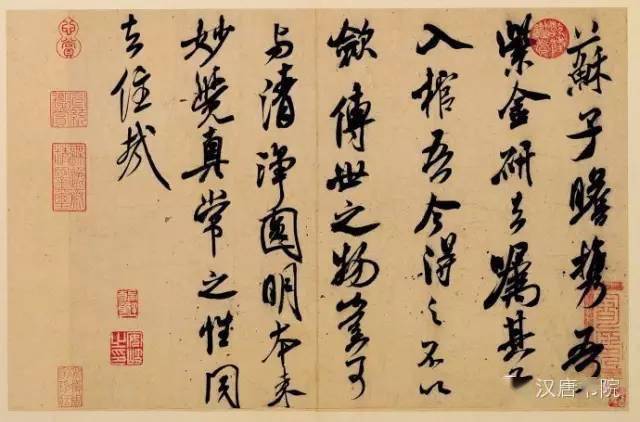 蘇子瞻携吾
紫金研去嘱其子
入棺吾今得之不以
歛傳世之物豈可
与清淨圓明本来
妙覺真常之性同
去住哉
汉唐 院